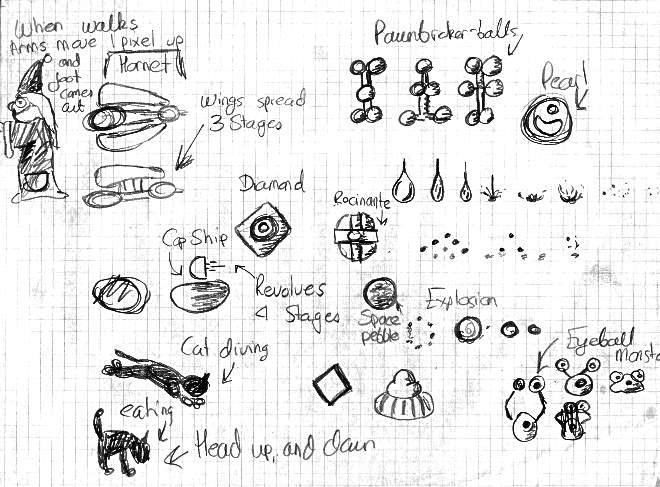 When walks
Arms move
and
foot
comes
out
1 pixel up
Hornet
Wings spread
3 Stages
Pawnbroker-balls
Pearl
Diamond
Rocinante
Cap Ship
Revolves
4 Stages
Space
pebble
Explosion
Eyeball
Monste
Cat diving
eating
Head up, and down